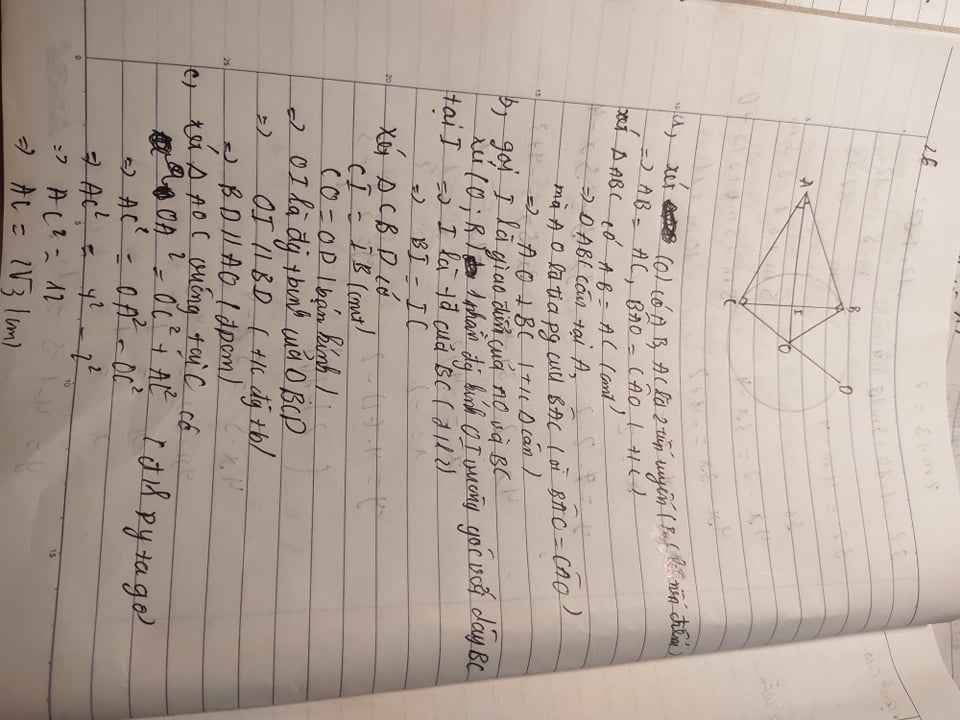 26
A
B
C
I
O
D
a) xét (O) có AB, AC là 2 tiếp tuyến (B, C là tiếp điểm)
=> AB = AC, BÂO = CÂO (t/c)
xét Δ ABC có AB = AC (cmt)
=> ΔABC cân tại A,
mà AO là tia pg của BÂC (vì BÂO = CÂO)
=> AO ⊥ BC (t/c Δ cân)
b) gọi I là giao điểm của AO và BC
xét (O; R) 1 phần đg kính OI vuông góc với dây BC
tại I => I là td của BC (đ/l2)
=> BI = IC
xét Δ CBD có
CO = OD (bán kính)
CI = IB (cmt)
=> OI là đg tbình của ΔBCD
=> OI // BD (t/c đg tb)
=> BD // AO (đpcm)
c) xét Δ AOC vuông tại C có
OA² = OC² + AC² (đlí pytago)
=> AC² = OA² - OC²
=> AC² = 4² - 2²
=> AC² = 12
=> AC = 2√3 (cm)